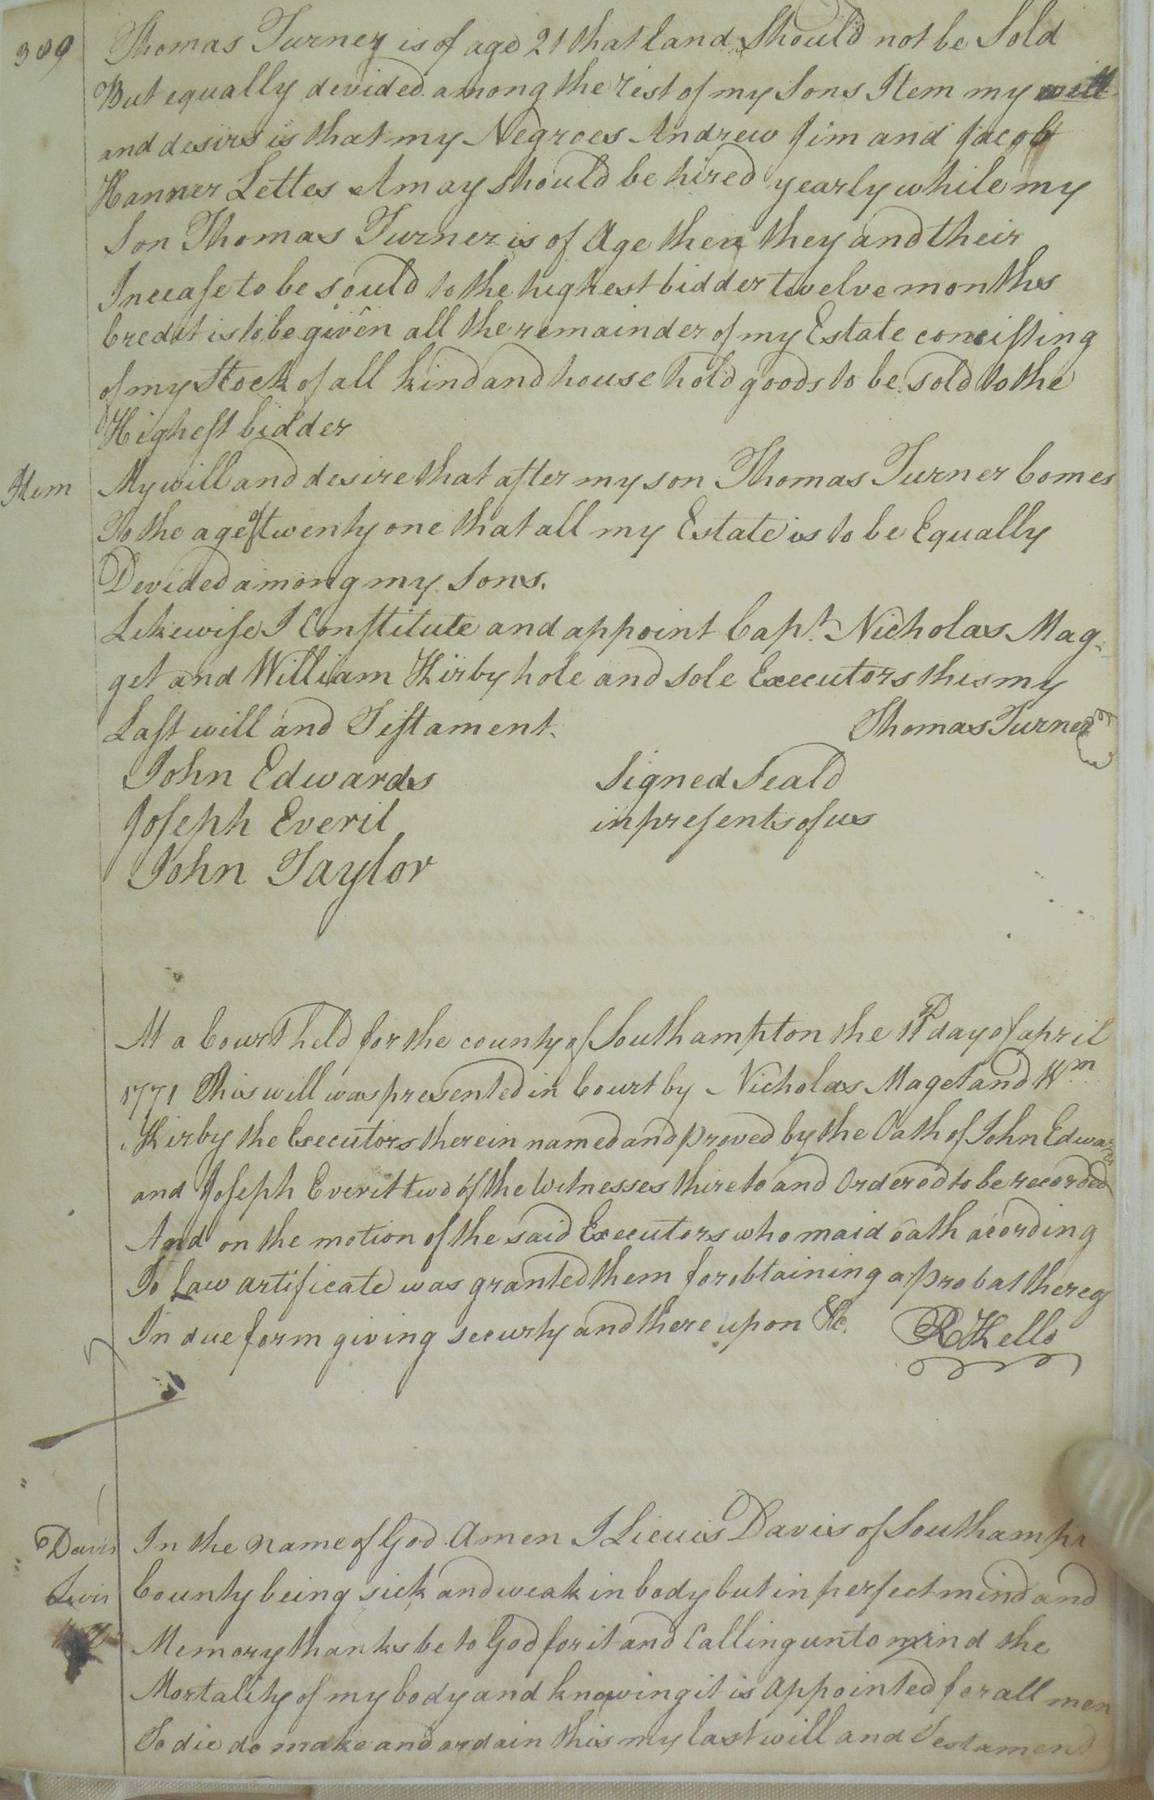 309
Thomas Turner is of age 21 that land Should not be Sold
But equally devided among the rest of my Sons Item my will
and desire is that my Negroes Andrew Jim and Jacob
Hanner Lettes Amay should be hired yearly while my
Son Thomas Turner is of Age then they and their
Increase to be sould to the highest bidder twelve months
Credit is to be given all the remainder of my Estate concisting
of my Stock of all kind and house hold goods to be sold to the
Highest bidder
Item My will and desire that after my son Thomas Turner Comes
To the age of twenty one that all my Estate is to be Equally
Devided among my Sons.
Likewise I Constitute and appoint Capt. Nicholas Mag-
get and William Kirby hole and sole Executors this my
Last will and Testament. Thomas Turner
John Edwards Signed Seald
Joseph Everit in presents of us
John Taylor
At a Court held for the county of Southampton the 11th day of april
1771 This will was presented in Court by Nicholas Maget and Wm
Kirby the Executors therein named and proved by the Oath of John Edwards
and Joseph Everit two of the Witnesses thireto and Ordered to be recorded
And on the motion of the said Executors who maid oath acording
To Law artificate was granted them for obtaining a probat thereof
In due form giving securty and there upon &c. R Kello
Davis In the Name of God Amen I Liewis Davis of Southampn
Lewis County being sick and weak in body but in perfect mind and
Memory thanks be to God for it and Calling unto mind the
Mortality of my body and knowing it is appointed for all men
To die do make and ordain this my last will and Testament